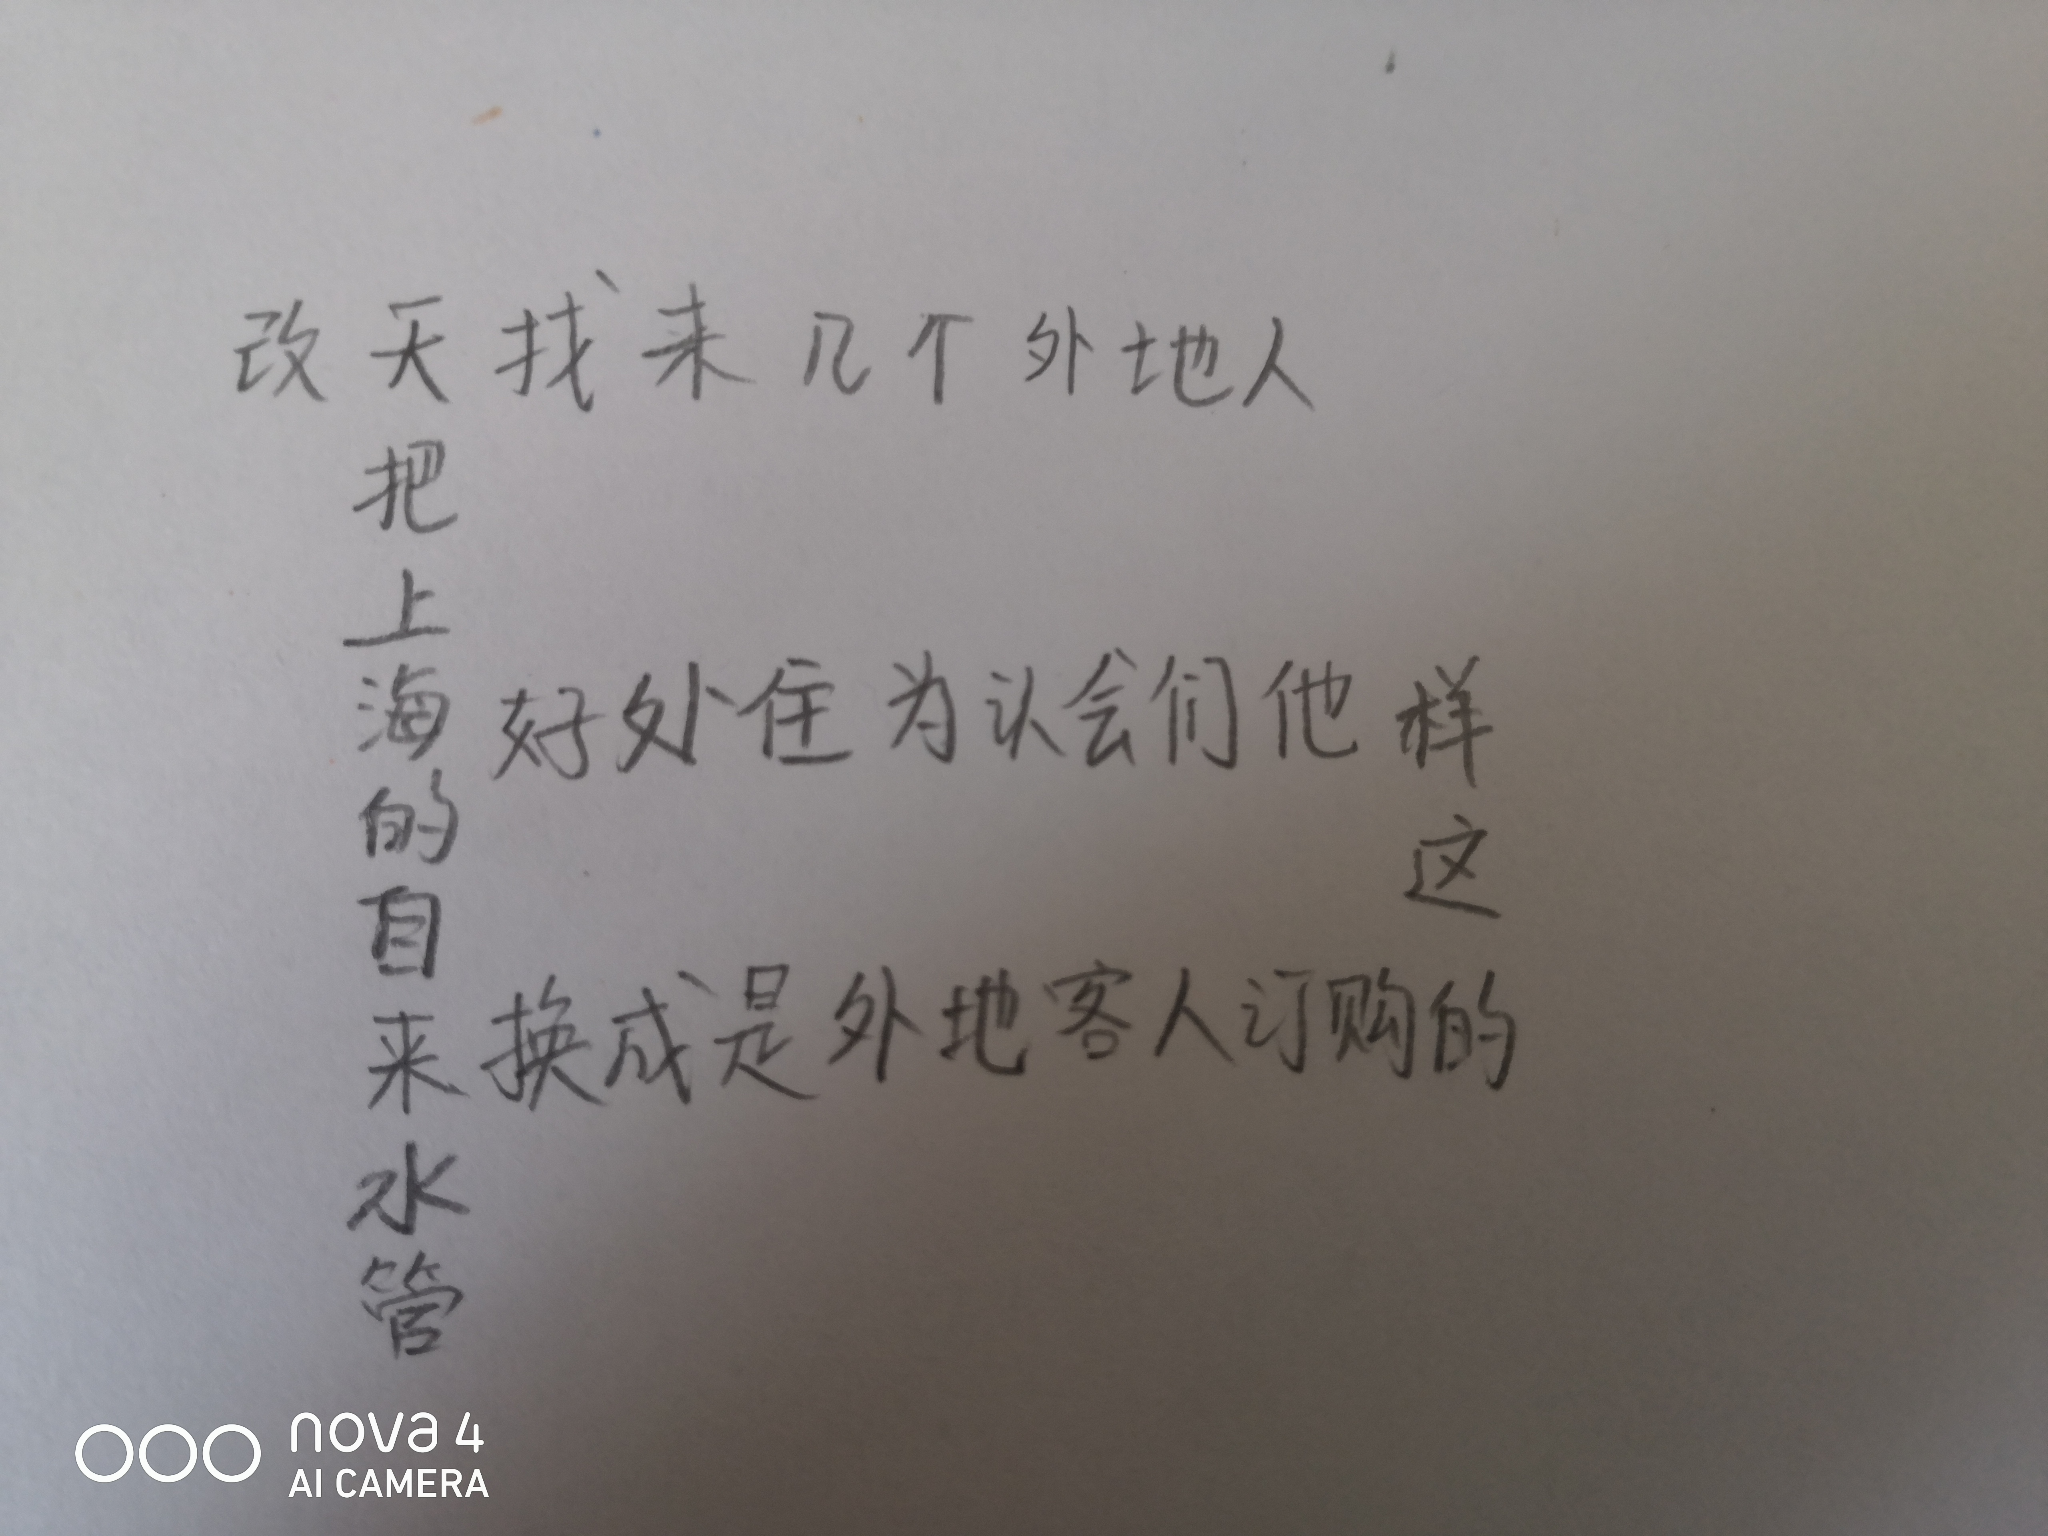 改天找来几个外地人
把上海的自来水管
换成是外地客人订购的
这样他们会认为住处好
nova 4
AI CAMERA